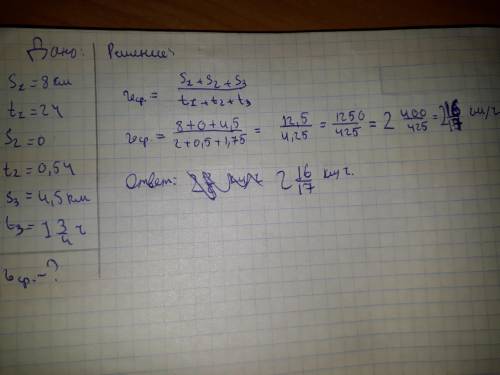 Дано:
S₁ = 8 км
t₁ = 2 ч
S₂ = 0
t₂ = 0,5 ч
S₃ = 4,5 км
t₃ = 1 3/4 ч
υср. - ?
Решение:
υср. = (S₁ + S₂ + S₃)/(t₁ + t₂ + t₃)
υср. = (8 + 0 + 4,5)/(2 + 0,5 + 1,75) = 12,5/4,25 = 1250/425 = 2 400/425 = 2 16/17 км/ч
Ответ: 2 16/17 км/ч.